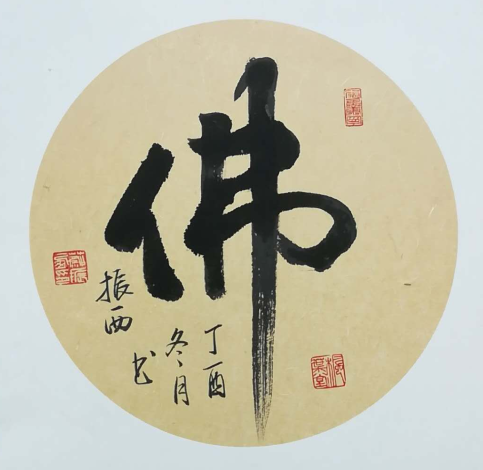 佛
丁酉
冬月
振西
书